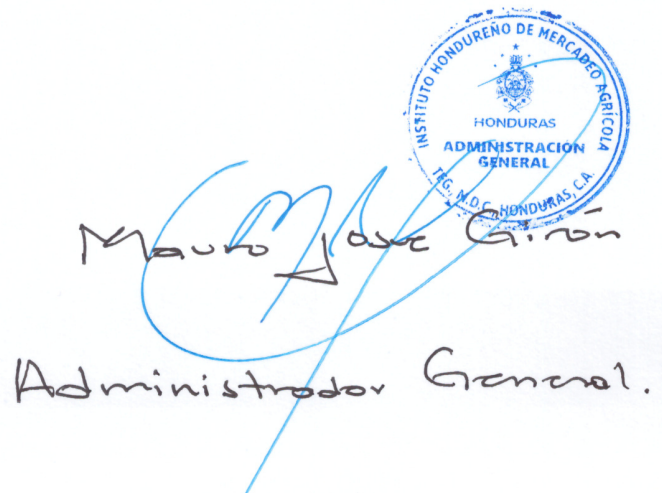 INSTITUTO HONDUREÑO DE MERCADEO AGRÍCOLA
HONDURAS
ADMINISTRACIÓN
GENERAL
TEG., M.D.C., HONDURAS, C.A.
Mauro Josue Girón
Administrador General.